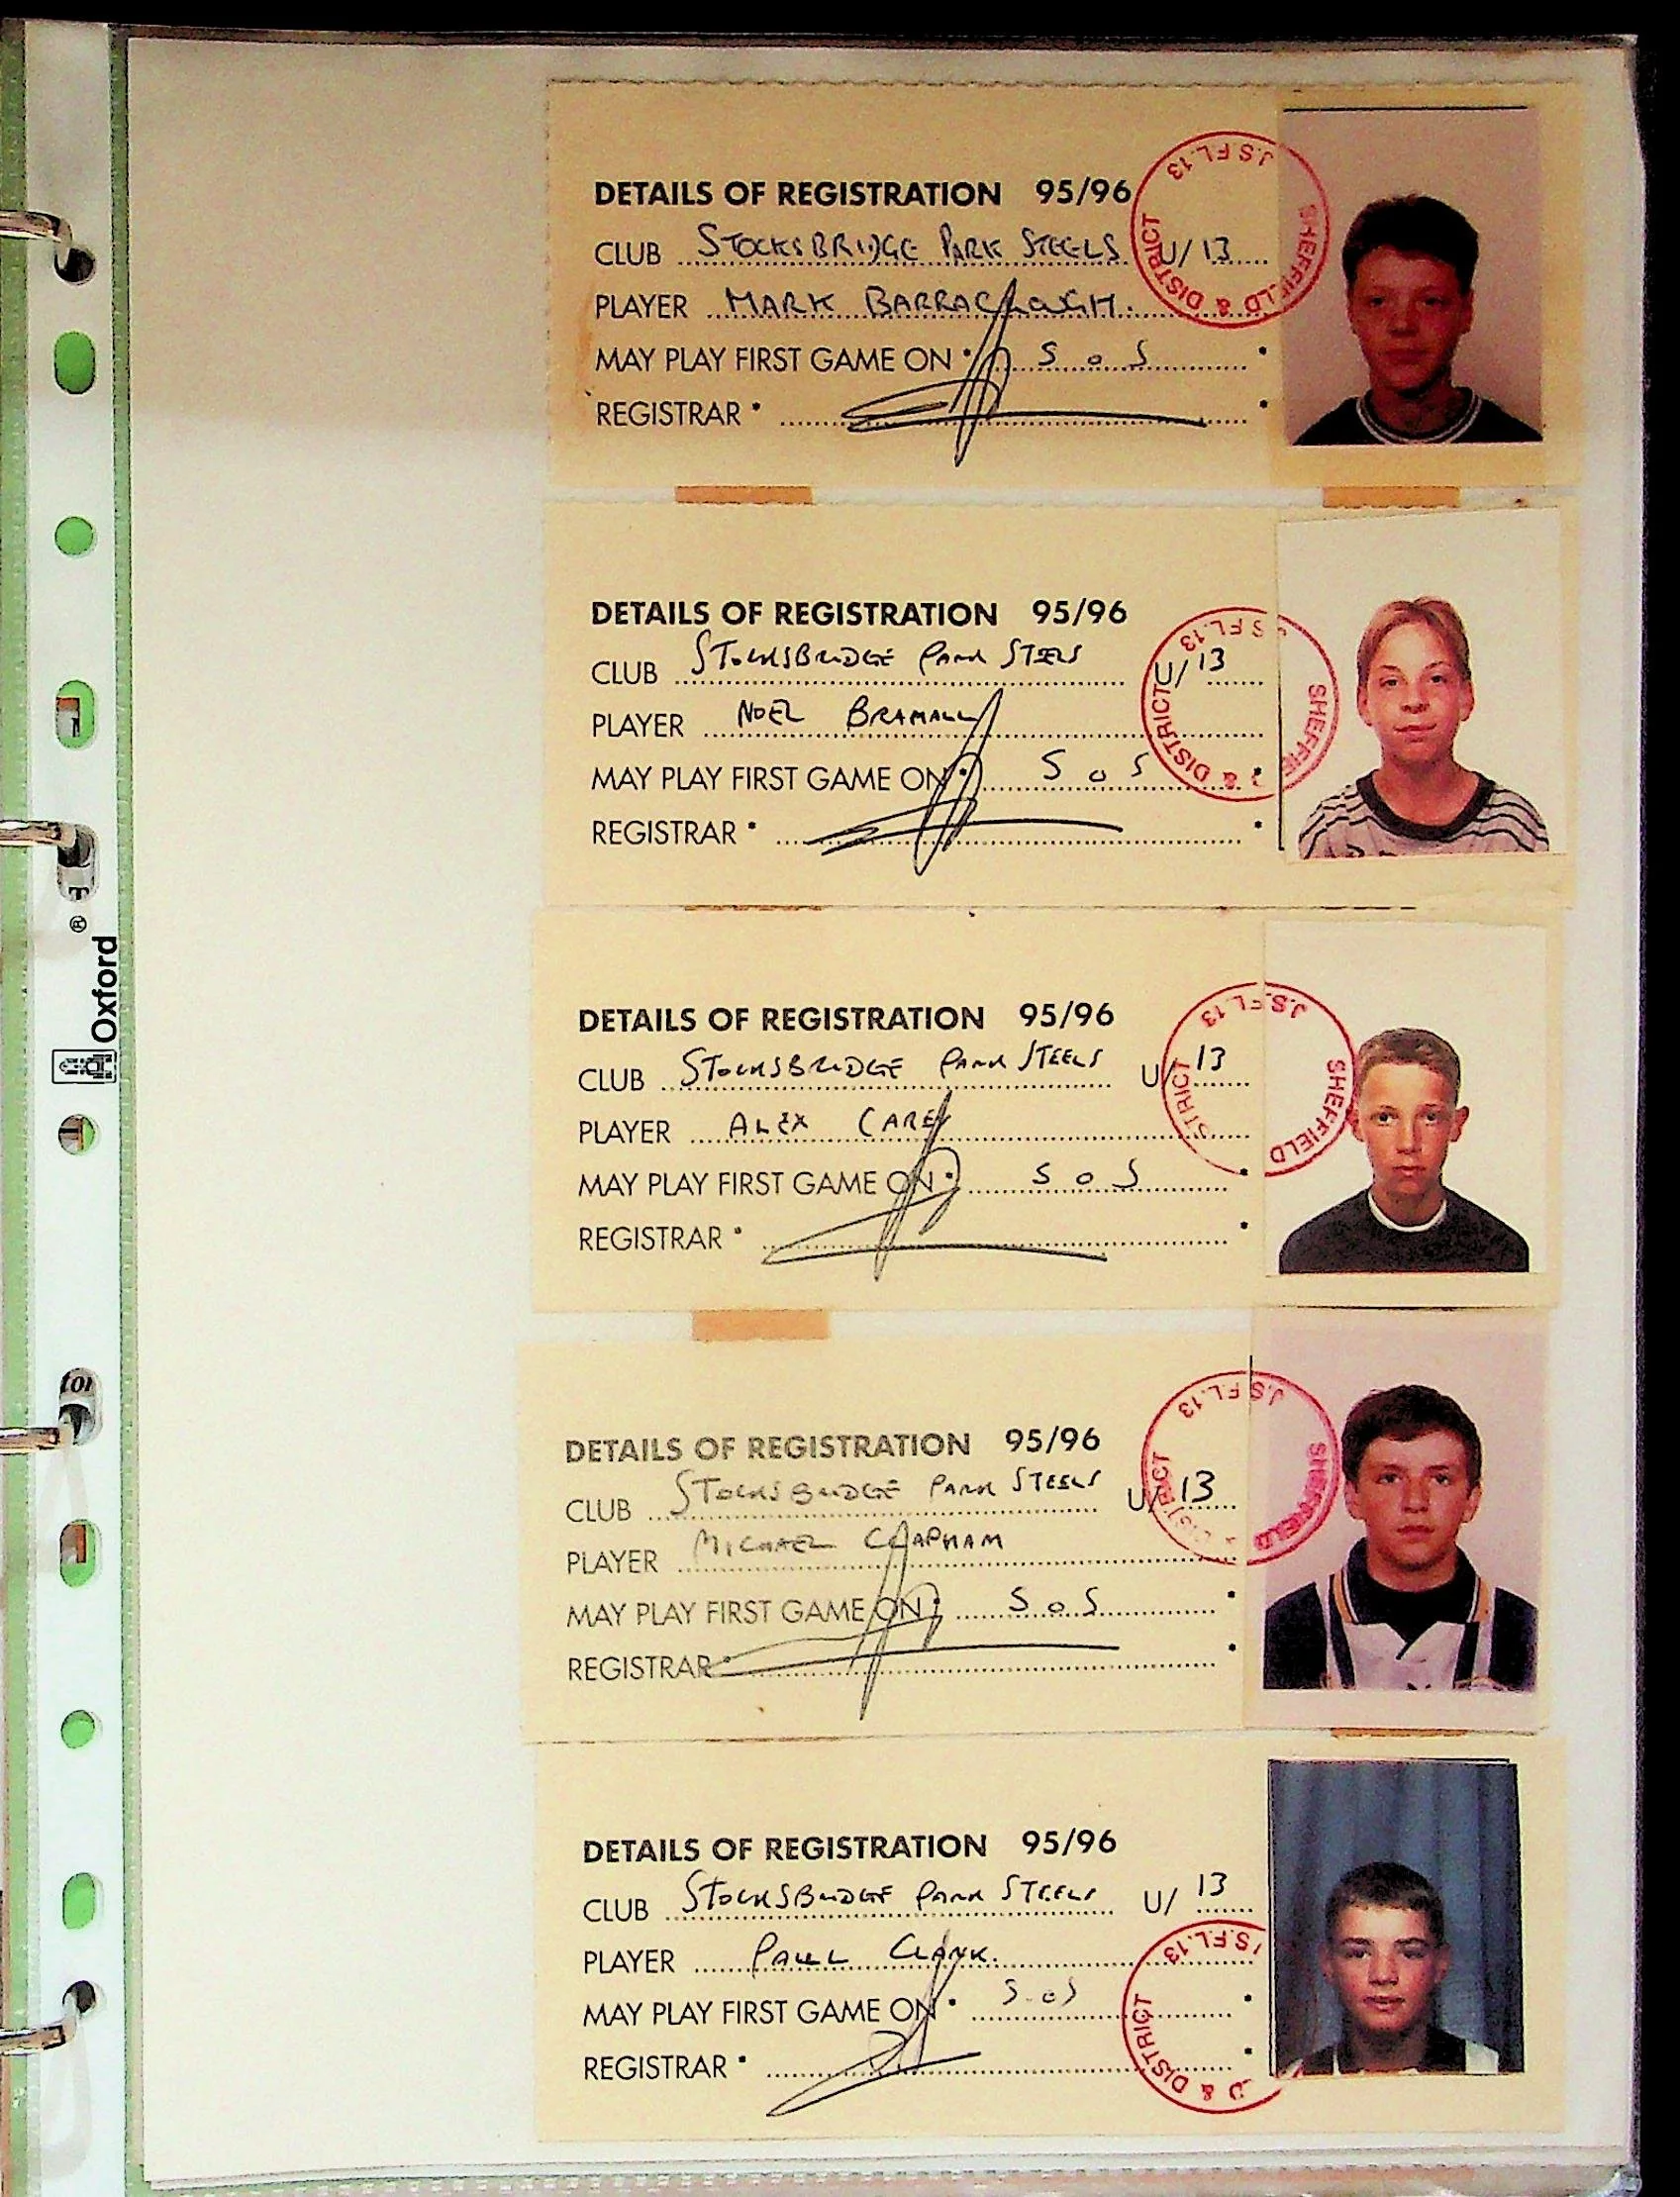 DETAILS OF REGISTRATION 95/96
CLUB STOCKSBRIDGE PARK STEELS U/ 13
PLAYER MARK BARRACLOUGH.
MAY PLAY FIRST GAME ON S o S
REGISTRAR
SHEFFIELD & DISTRICT J.S.F.L. 13
DETAILS OF REGISTRATION 95/96
CLUB STOCKSBRIDGE PARK STEELS U/ 13
PLAYER NOEL BRAMALL
MAY PLAY FIRST GAME ON S o S
REGISTRAR
SHEFFIE D & DISTRICT J.S.F.L. 13
DETAILS OF REGISTRATION 95/96
CLUB STOCKSBRIDGE PARK STEELS U/ 13
PLAYER ALEX CAREY
MAY PLAY FIRST GAME ON S o S
REGISTRAR
SHEFFIELD STRICT J.S.F.L. 13
DETAILS OF REGISTRATION 95/96
CLUB STOCKSBRIDGE PARK STEELS U/ 13
PLAYER MICHAEL CLAPHAM
MAY PLAY FIRST GAME ON S o S
REGISTRAR
SHEFFIELD DISTRICT J.S.F.L. 13
DETAILS OF REGISTRATION 95/96
CLUB STOCKSBRIDGE PARK STEELS U/ 13
PLAYER PAUL CLARK.
MAY PLAY FIRST GAME ON S o S
REGISTRAR
D & DISTRICT J.S.F.L. 13
Oxford ®